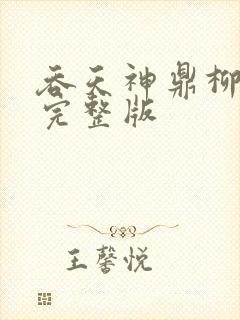 吞天神鼎柳
完整版
王馨悦